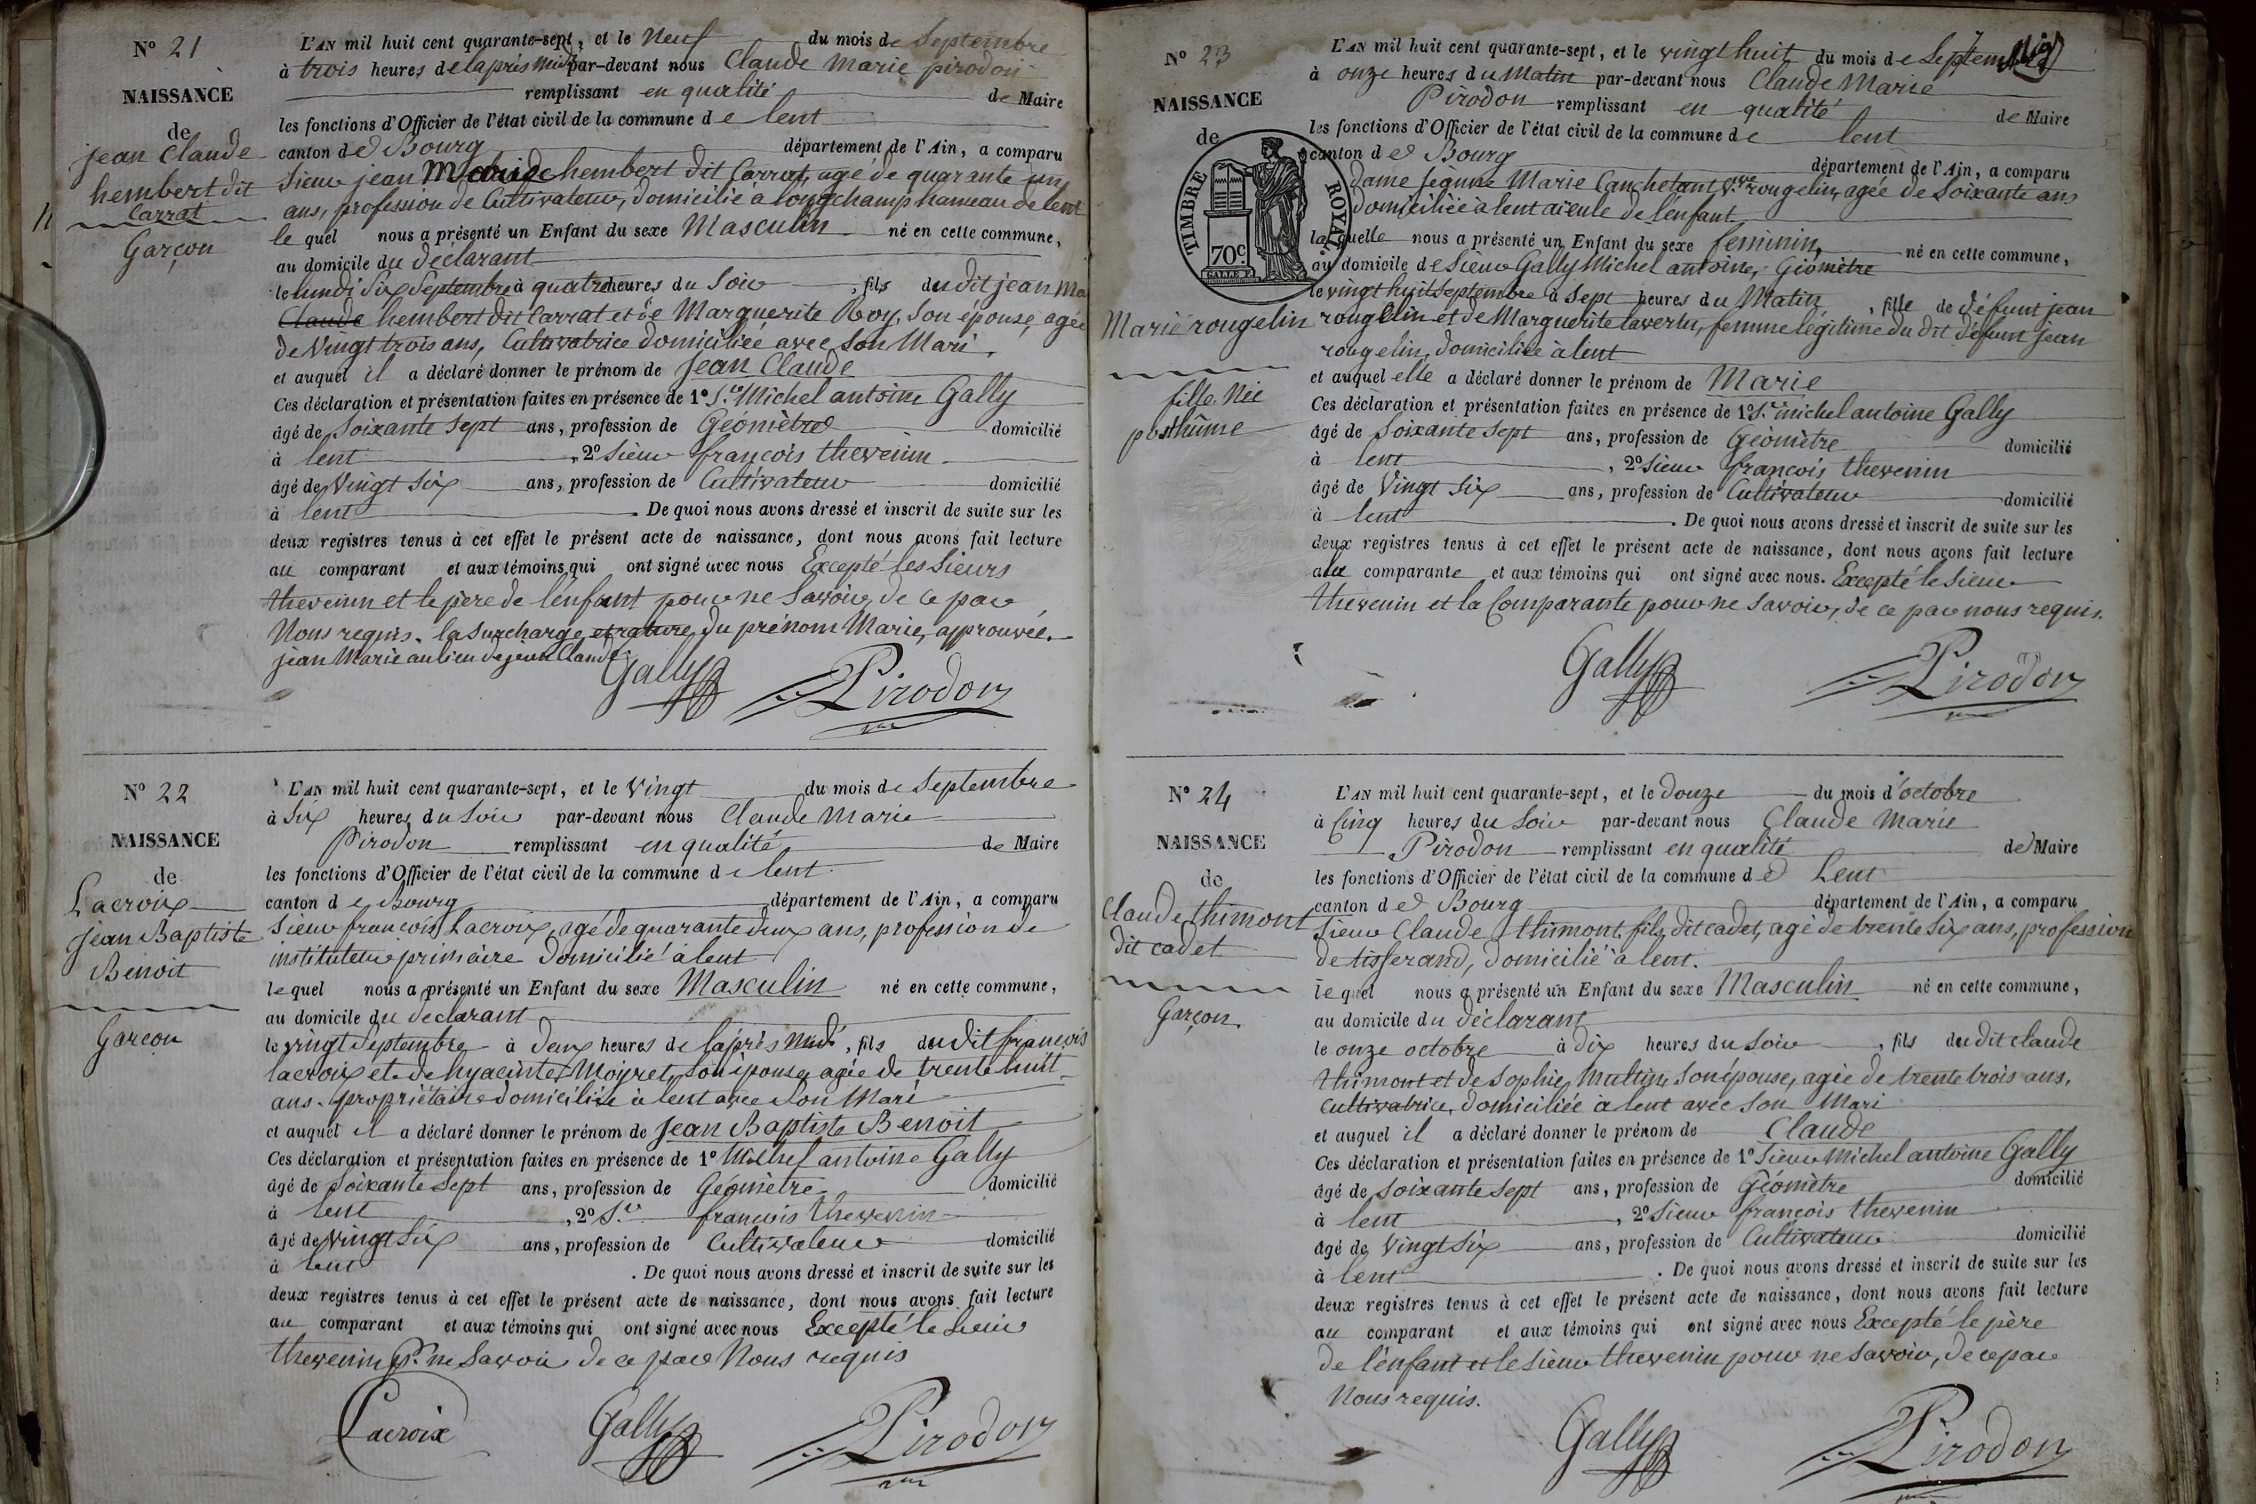 N° 21
NAISSANCE
de
jean Claude
hembert dit
Carrat
Garçon
L'AN mil huit cent quarante-sept, et le Neuf du mois de Septembre
à trois heures de laprès midi par-devant nous Claude Marie pirodon
remplissant en qualité de Maire
les fonctions d'Officier de l'état civil de la commune de lent
canton de Bourg département de l'Ain, a comparu
Sieur jean Marie hembert dit Carrat, agé de quarante un
ans, profession de Cultivateur, domicilié à longchamp hameau de lent
le quel nous a présenté un Enfant du sexe Masculin né en cette commune,
au domicile du déclarant
le lundi Six Septembre à quatre heures du Soir, fils du dit jean Ma
Claude hembert dit Carrat et de Marguerite Roy, son épouse, agée
de Vingt trois ans, Cultivatrice domiciliée avec son Mari.
et auquel il a déclaré donner le prénom de Jean Claude
Ces déclaration et présentation faites en présence de 1° Sr Michel antoine Gally
âgé de Soixante Sept ans, profession de Géomètre domicilié
à lent, 2° Sieur françois thevenin
âgé de Vingt Six ans, profession de Cultivateur domicilié
à lent. De quoi nous avons dressé et inscrit de suite sur les
deux registres tenus à cet effet le présent acte de naissance, dont nous avons fait lecture
au comparant et aux témoins qui ont signé avec nous Excepté les Sieurs
thevenin et le père de l'enfant pour ne Savoir, de ce par
Nous requis. la Surcharge et rature du prénom Marie, approuvée.
jean Marie au lieu de jean Claude.
Gally Pirodon
N° 22
NAISSANCE
de
Lacroix
jean Baptiste
Benoit
Garçon
L'AN mil huit cent quarante-sept, et le Vingt du mois de Septembre
à Six heures du Soir par-devant nous Claude Marie
Pirodon remplissant en qualité de Maire
les fonctions d'Officier de l'état civil de la commune de lent
canton de Bourg département de l'Ain, a comparu
Sieur françois Lacroix, agé de quarante deux ans, profession de
instituteur primaire domicilié à lent
le quel nous a présenté un Enfant du sexe Masculin né en cette commune,
au domicile du déclarant
le vingt Septembre à deux heures de laprès Midi, fils du dit françois
lacroix et de hyacinte Moyret, son épouse, agée de trente huit
ans. propriétaire domiciliée à lent avec Son Mari
et auquel il a déclaré donner le prénom de Jean Baptiste Benoit
Ces déclaration et présentation faites en présence de 1° Michel antoine Gally
âgé de Soixante Sept ans, profession de Géomètre domicilié
à lent, 2° Sr françois thevenin
âgé de Vingt Six ans, profession de Cultivateur domicilié
à lent. De quoi nous avons dressé et inscrit de suite sur les
deux registres tenus à cet effet le présent acte de naissance, dont nous avons fait lecture
au comparant et aux témoins qui ont signé avec nous Excepté le Sieur
thevenin pr ne Savoir de ce par Nous requis
Lacroix Gally Pirodon
N° 23
NAISSANCE
de
Marie rougelin
fille Née
posthume
TIMBRE ROYAL
70c
L'AN mil huit cent quarante-sept, et le vingt huit du mois de Septembre
à onze heures du Matin par-devant nous Claude Marie
Pirodon remplissant en qualité de Maire
les fonctions d'Officier de l'état civil de la commune de lent
canton de Bourg département de l'Ain, a comparu
dame jeanne Marie Canchetant Vve rougelin, agée de Soixante ans
domiciliée à lent aieule de l'enfant
laquelle nous a présenté un Enfant du sexe feminin, né en cette commune,
au domicile de Sieur Gally Michel antoine, Géomètre
le vingt huit Septembre à Sept heures du Matin, fille de défunt jean
rougelin et de Marguerite lavertu, femme légitime du dit défunt jean
rougelin, domiciliée à lent
et auquel elle a déclaré donner le prénom de Marie
Ces déclaration et présentation faites en présence de 1° Sr michel antoine Gally
âgé de Soixante Sept ans, profession de Géomètre domicilié
à lent, 2° Sieur françois thevenin
âgé de Vingt Six ans, profession de Cultivateur domicilié
à lent. De quoi nous avons dressé et inscrit de suite sur les
deux registres tenus à cet effet le présent acte de naissance, dont nous avons fait lecture
à la comparante et aux témoins qui ont signé avec nous. Excepté le Sieur
thevenin et la Comparante pour ne Savoir, de ce par nous requis.
Gally Pirodon
N° 24
NAISSANCE
de
Claude thimont
dit cadet
Garçon.
L'AN mil huit cent quarante-sept, et le douze du mois d'octobre
à Cinq heures du Soir par-devant nous Claude Marie
Pirodon remplissant en qualité de Maire
les fonctions d'Officier de l'état civil de la commune de Lent
canton de Bourg département de l'Ain, a comparu
Sieur Claude thimont, fils, dit cadet, agé de trente Six ans, profession
de tisserand, domicilié à lent.
le quel nous a présenté un Enfant du sexe Masculin né en cette commune,
au domicile du déclarant
le onze octobre à dix heures du Soir, fils du dit claude
thimont et de Sophie Multin, son épouse, agée de trente trois ans,
cultivatrice, domiciliée à lent avec Son Mari
et auquel il a déclaré donner le prénom de Claude
Ces déclaration et présentation faites en présence de 1° Sieur Michel antoine Gally
âgé de Soixante Sept ans, profession de Géomètre domicilié
à lent, 2° Sieur françois thevenin
âgé de Vingt Six ans, profession de Cultivateur domicilié
à lent. De quoi nous avons dressé et inscrit de suite sur les
deux registres tenus à cet effet le présent acte de naissance, dont nous avons fait lecture
au comparant et aux témoins qui ont signé avec nous Excepté le père
de l'enfant et le Sieur thevenin pour ne Savoir, de ce par
Nous requis.
Gally Pirodon